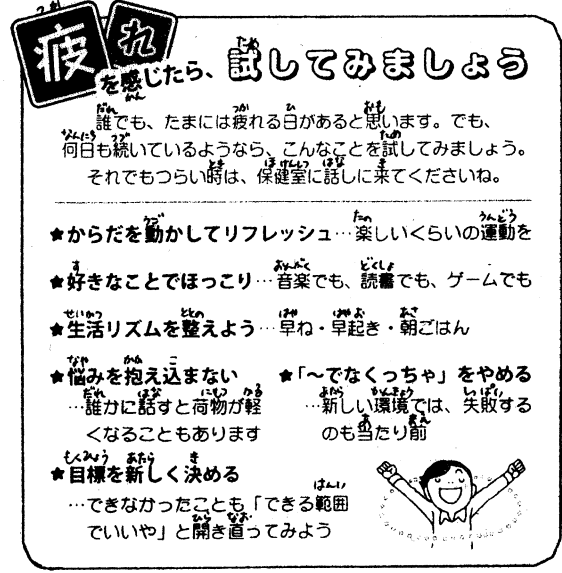 疲れを感じたら、試してみましょう
誰でも、たまには疲れる日があると思います。でも、
何日も続いているようなら、こんなことを試してみましょう。
それでもつらい時は、保健室に話しに来てくださいね。
★からだを動かしてリフレッシュ…楽しいくらいの運動を
★好きなことでほっこり…音楽でも、読書でも、ゲームでも
★生活リズムを整えよう…早ね・早起き・朝ごはん
★悩みを抱え込まない
…誰かに話すと荷物が軽
くなることもあります
★「～でなくっちゃ」をやめる
…新しい環境では、失敗する
のも当たり前
★目標を新しく決める
…できなかったことも「できる範囲
でいいや」と開き直ってみよう